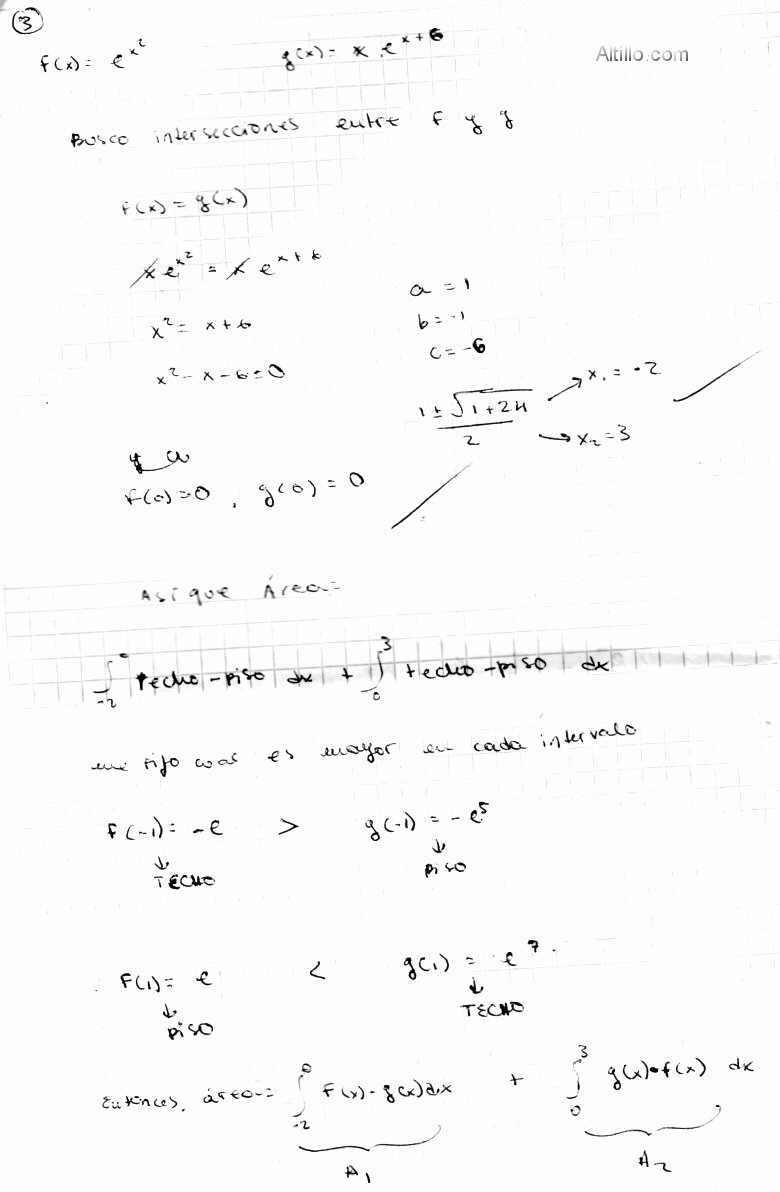 ③
f(x) = e^{x^2} g(x) = x . e^{x+6} Altillo.com
Busco intersecciones entre f y g
f(x) = g(x)
x e^{x^2} = x e^{x+6}
a = 1
x^2 = x+6 b = -1
c = -6
x^2 - x - 6 = 0
\frac{1 ± \sqrt{1+24}}{2} → x_1 = -2
→ x_2 = 3
f(0) = 0 , g(0) = 0
Así que Área =
∫_{-2}^{0} techo - piso dx + ∫_{0}^{3} techo - piso dx
me fijo cual es mayor en cada intervalo
f(-1) = -e > g(-1) = -e^5
↓ TECHO ↓ PISO
f(1) = e < g(1) = e^7.
↓ PISO ↓ TECHO
Entonces, área = ∫_{-2}^{0} f(x) - g(x) dx + ∫_{0}^{3} g(x) - f(x) dx
A_1 A_2